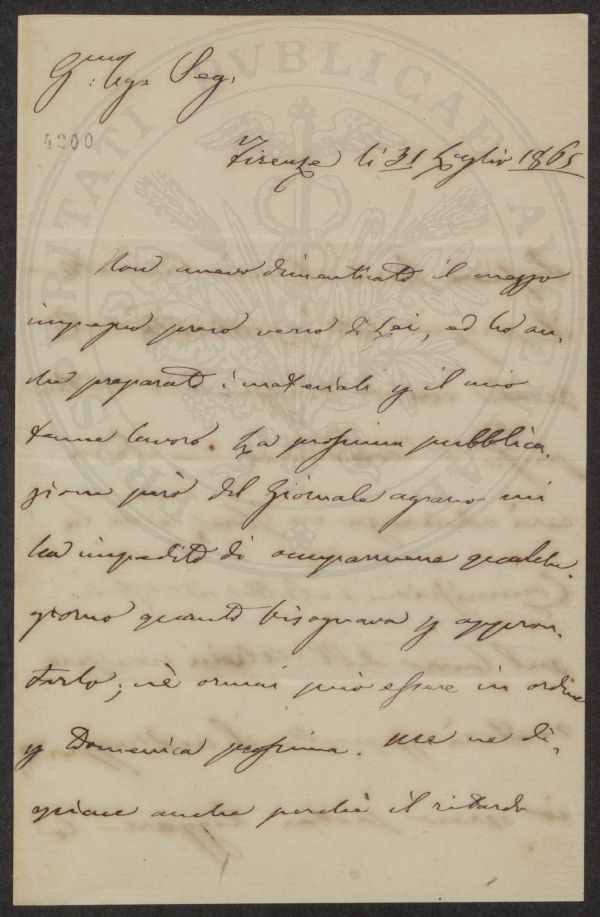 Gmo Sigr Seg.
4200
Firenze li 31 Luglio 1865
Non avevo dimenticato il mezzo
impegno preso verso di Lei, ed ho an-
che preparati i materiali p il mio
tenue lavoro. La prossima pubblica-
zione però del Giornale agrario mi
ha impedito di occuparmene qualche
giorno quanto bisognava p appron-
tarlo; nè ormai può essere in ordine
p Domenica prossima. Me ne di-
spiace anche perchè il ritardo
PVBLICAE